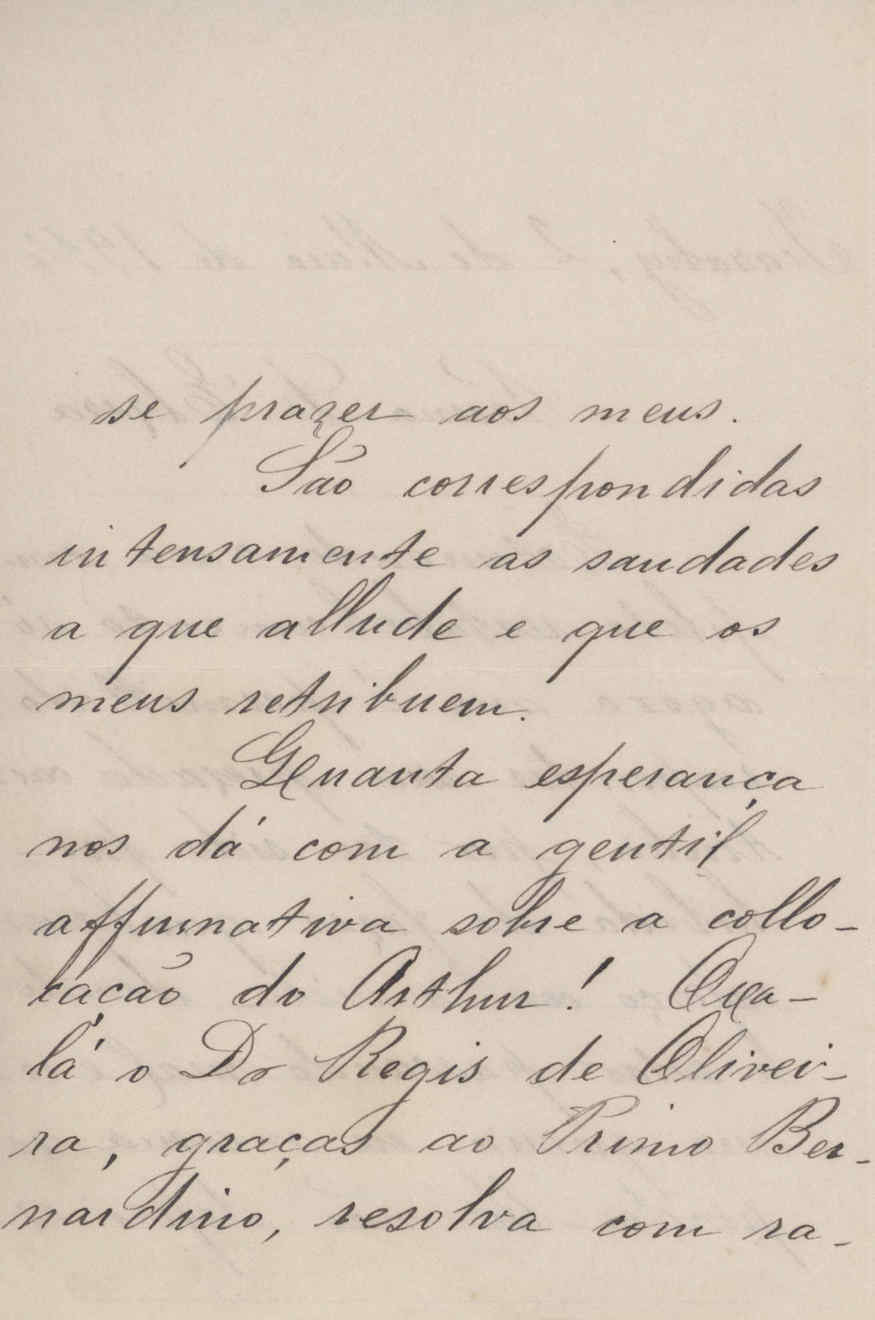 se prazer aos meus.
São correspondidas
intensamente as saudades
a que allude e que os
meus retribuem.
Quanta esperança
nos dá com a gentil
affirmativa sobre a collo-
cação do Arthur! Oxa-
lá o Dr Regis de Olivei-
ra, graças ao Primo Ber-
nardino, resolva com ra-